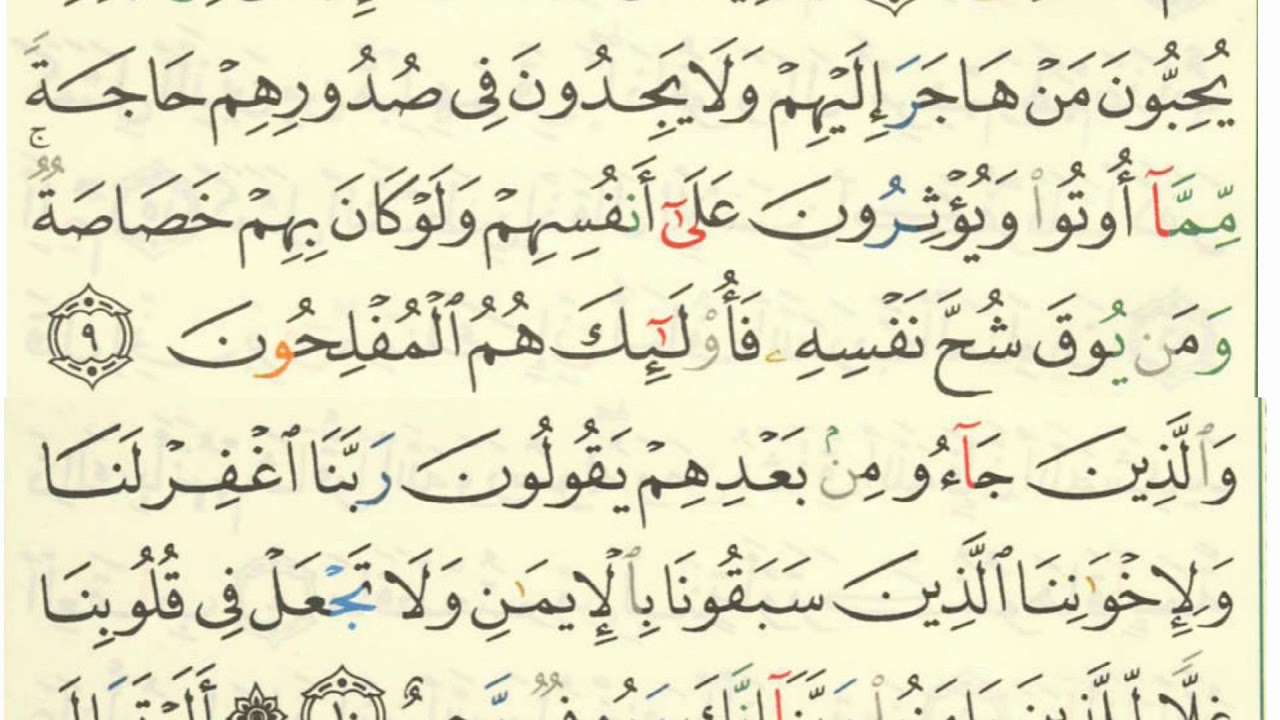 يُحِبُّونَ مَنْ هَاجَرَ إِلَيْهِمْ وَلَا يَجِدُونَ فِى صُدُورِهِمْ حَاجَةً
مِّمَّآ أُوتُوا۟ وَيُؤْثِرُونَ عَلَىٰٓ أَنفُسِهِمْ وَلَوْ كَانَ بِهِمْ خَصَاصَةٌ ۚ
وَمَن يُوقَ شُحَّ نَفْسِهِۦ فَأُو۟لَٰٓئِكَ هُمُ ٱلْمُفْلِحُونَ ٩
وَٱلَّذِينَ جَآءُو مِنۢ بَعْدِهِمْ يَقُولُونَ رَبَّنَا ٱغْفِرْ لَنَا
وَلِإِخْوَٰنِنَا ٱلَّذِينَ سَبَقُونَا بِٱلْإِيمَٰنِ وَلَا تَجْعَلْ فِى قُلُوبِنَا